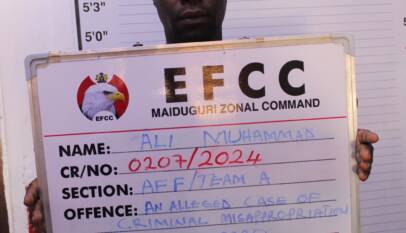 5'3"
5'0"
EFCC
EFCC
MAIDUGURI ZONAL COMMAND
NAME: ALI MUHAMMAD
CR/NO: 0207/2024
SECTION: AFF/TEAM A
OFFENCE: AN ALLEGED CASE OF
CRIMINAL MISAPPROPRIATION